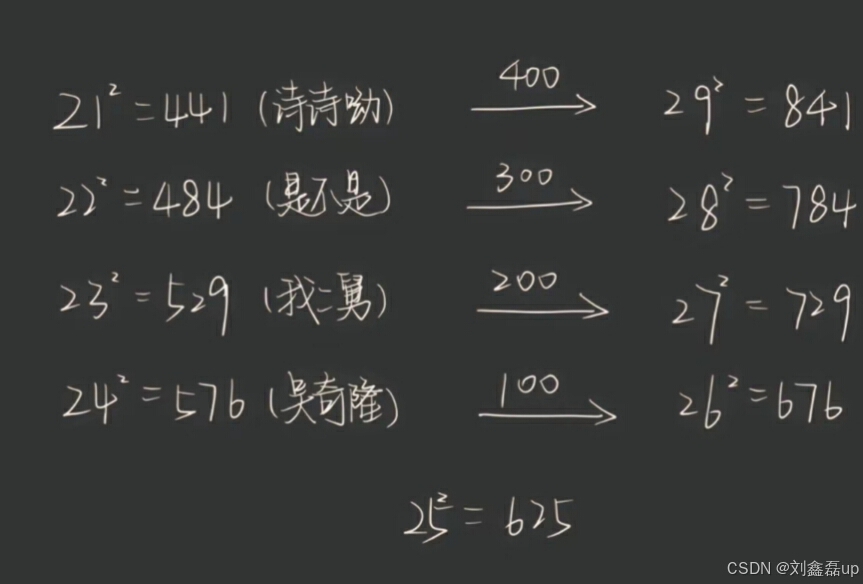 21² = 441 (诗诗呦) 400 → 29² = 841
22² = 484 (是不是) 300 → 28² = 784
23² = 529 (我二舅) 200 → 27² = 729
24² = 576 (吴奇隆) 100 → 26² = 676
25² = 625
CSDN @刘鑫磊up